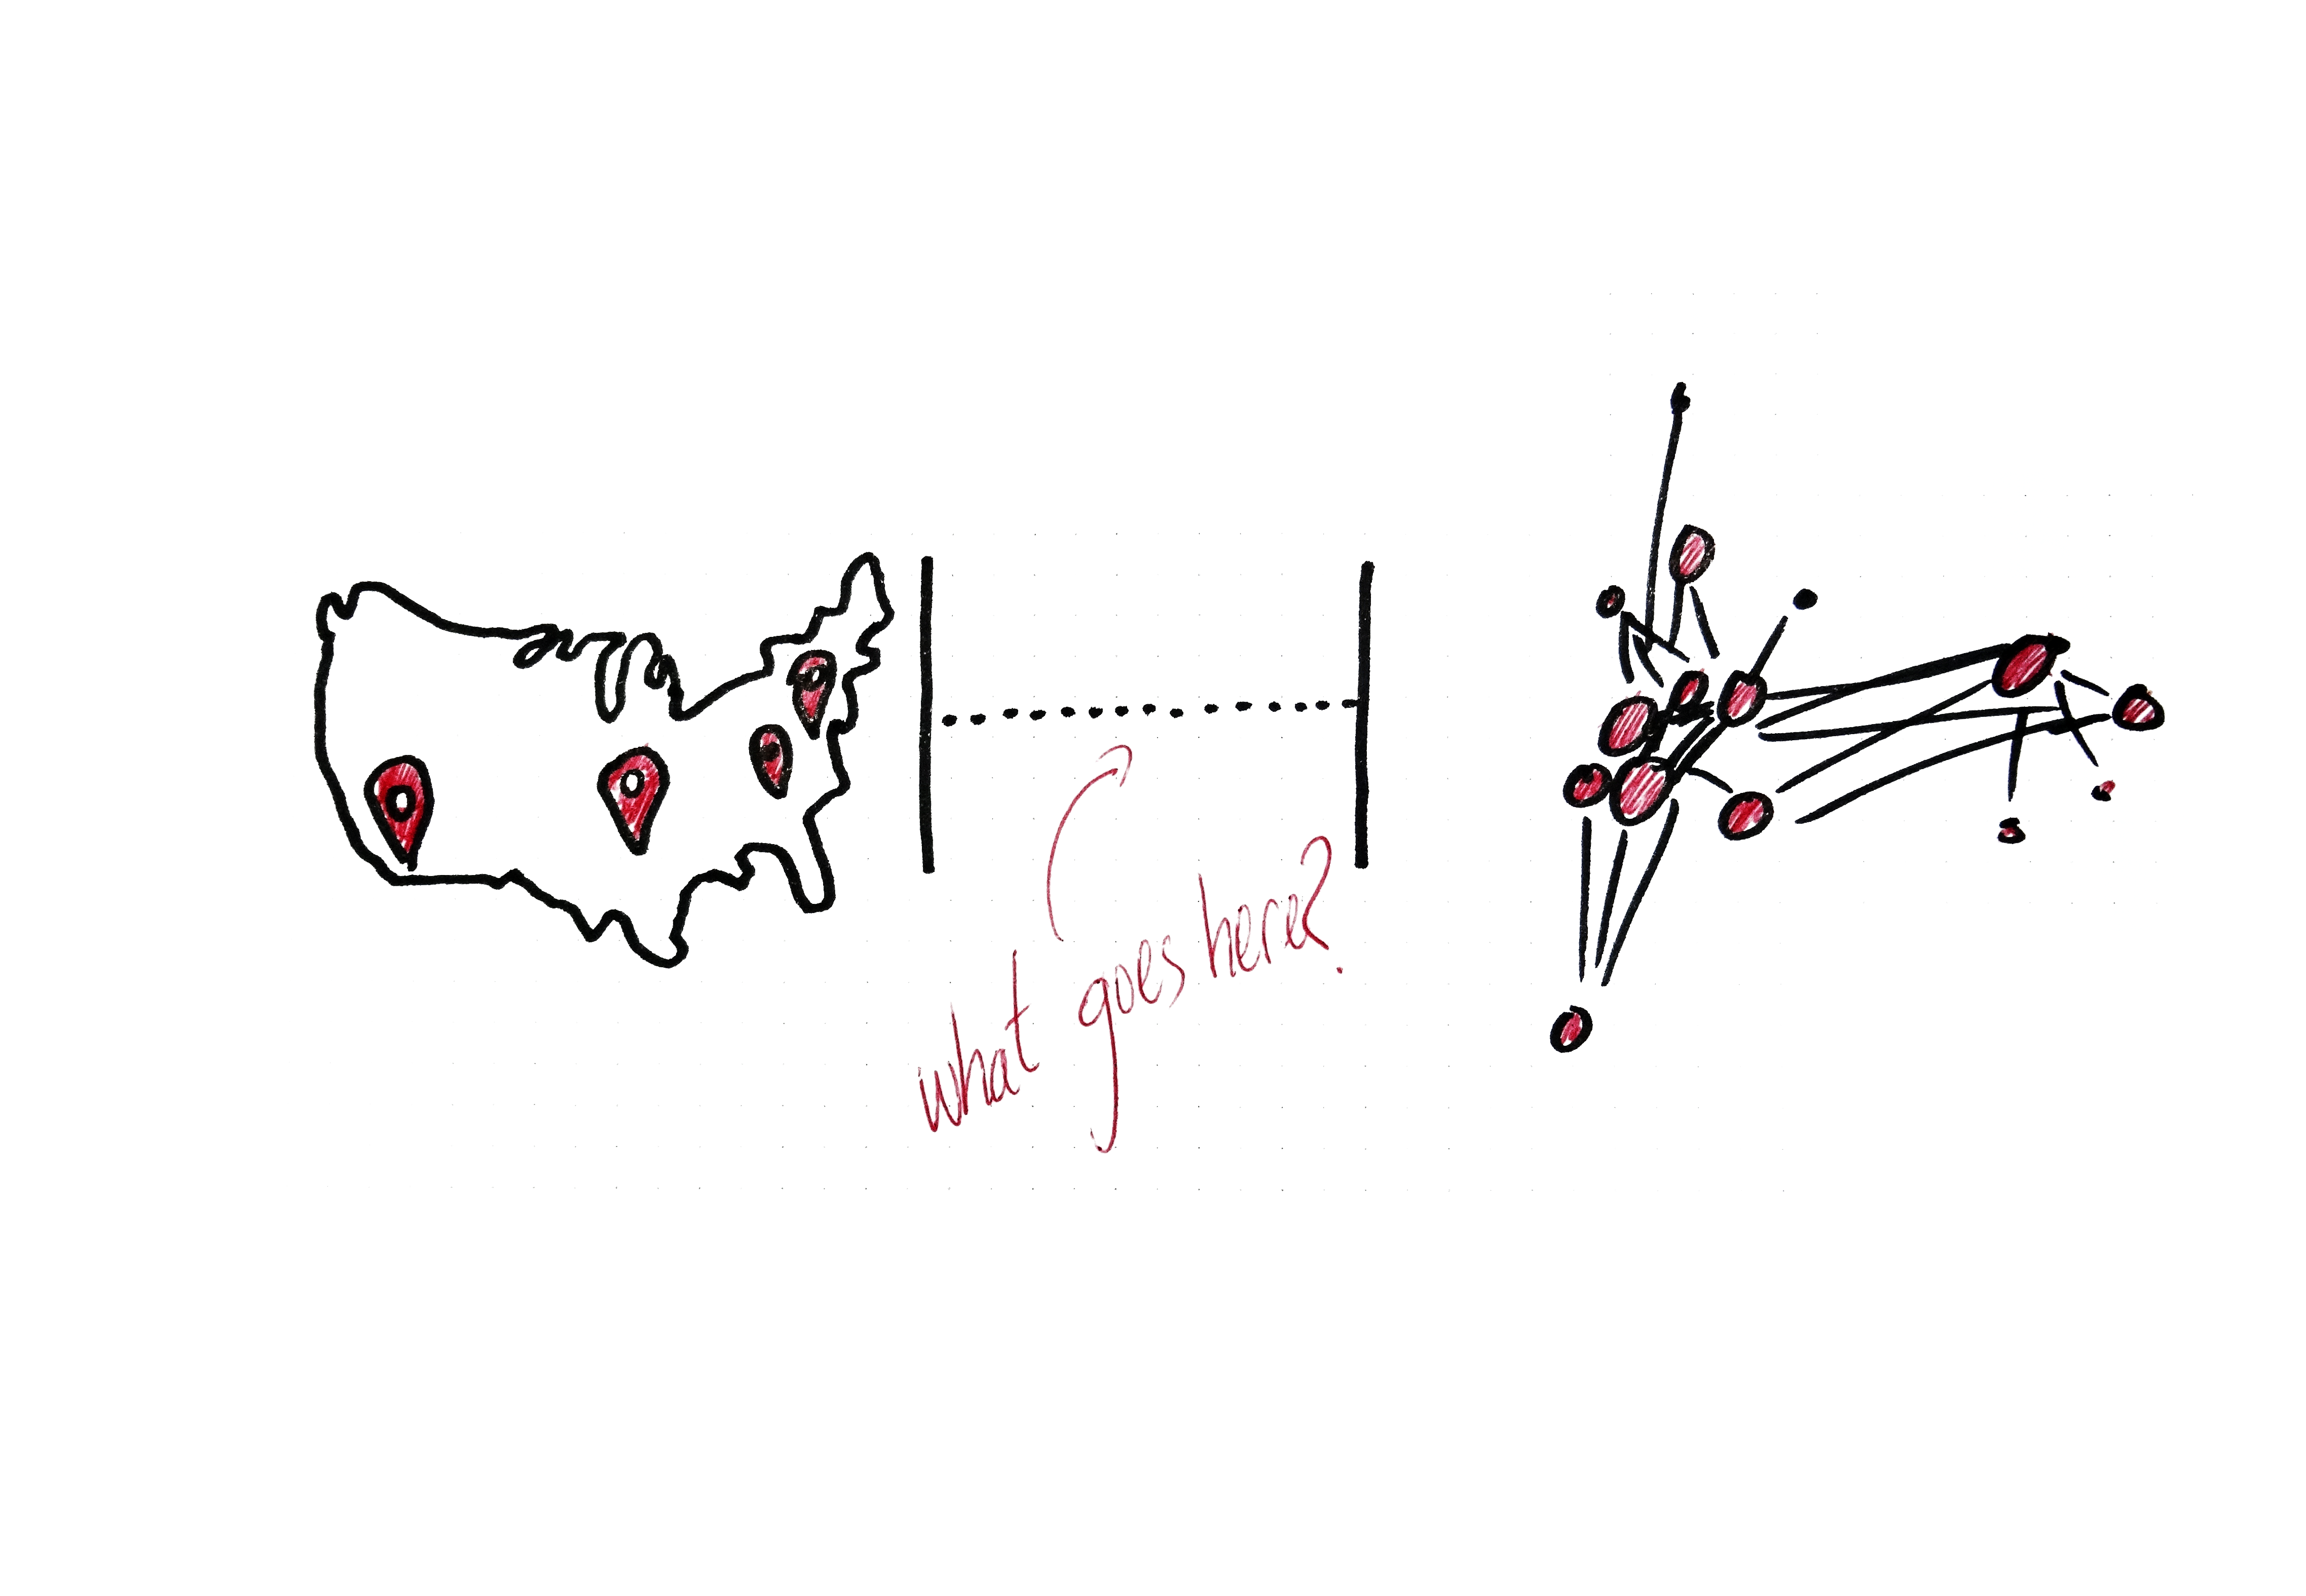 what goes here?